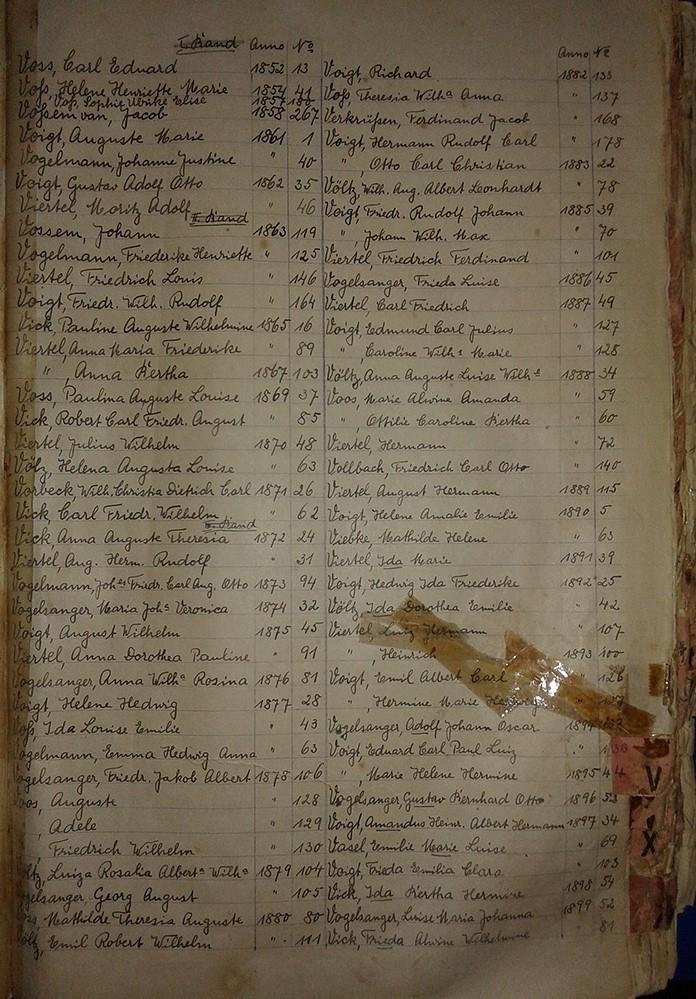 I. Band Anno No
Voss, Carl Eduard 1852 13
Voß, Helene Henriette Marie 1854 41
Voß, Sophie Ulrike Elise 1857
Vossem van, Jacob 1858 267
Voigt, Auguste Marie 1861 1
Vogelmann, Johanne Justine " 40
Voigt, Gustav Adolf Otto 1862 35
Viertel, Moritz Adolf " 46
II. Band
Vossem, Johann 1863 119
Vogelmann, Friederike Henriette " 125
Viertel, Friedrich Louis " 146
Voigt, Friedr. Wilh. Rudolf " 164
Vick, Pauline Auguste Wilhelmine 1865 16
Viertel, Anna Maria Friederike " 89
" , Anna Bertha 1867 103
Voss, Paulina Auguste Louise 1869 37
Vick, Robert Carl Friedr. August " 85
Viertel, Julius Wilhelm 1870 48
Völz, Helena Augusta Louise " 63
Vorbeck, Wilh. Christia Dietrich Carl 1871 26
Vick, Carl Friedr. Wilhelm " 62
Band
Vick, Anna Auguste Theresia 1872 24
Viertel, Aug. Herm. Rudolf " 31
Vogelmann, Johs Friedr. Carl Aug. Otto 1873 94
Vogelsanger, Maria Joha Veronica 1874 32
Voigt, August Wilhelm 1875 45
Viertel, Anna Dorothea Pauline " 91
Vogelsanger, Anna Wilha Rosina 1876 81
Voigt, Helene Hedwig 1877 28
Voß, Ida Louise Emilie " 43
Vogelmann, Emma Hedwig Anna " 63
Vogelsanger, Friedr. Jakob Albert 1878 106
oos, Auguste " 128
, Adele " 129
Friedrich Wilhelm " 130
ltz, Luiza Rosalia Alberta Wilha 1879 104
gelsanger, Georg August " 105
Mathilde Theresia Auguste 1880 80
Emil Robert Wilhelm " 111
Anno No
Voigt, Richard 1882 133
Voß, Theresia Wilha Anna " 137
Verkrüßen, Ferdinand Jacob " 168
Voigt, Hermann Rudolf Carl " 178
" , Otto Carl Christian 1883 22
Völtz, Wilh. Aug. Albert Leonhardt " 78
Voigt, Friedr. Rudolf Johann 1885 39
" , Johann Wilh. Max " 70
Viertel, Friedrich Ferdinand " 101
Vogelsanger, Frieda Luise 1886 45
Viertel, Carl Friedrich 1887 49
Voigt, Edmund Carl Julius " 127
" , Caroline Wilha Marie " 128
Völtz, Anna Auguste Luise Wilha 1888 34
Voos, Marie Alwine Amanda " 59
" , Ottilie Caroline Bertha " 60
Viertel, Hermann " 72
Vollbach, Friedrich Carl Otto " 140
Viertel, August Hermann 1889 115
Voigt, Helene Amalie Emilie 1890 5
Viebke, Mathilde Helene " 63
Viertel, Ida Marie 1891 39
Voigt, Hedwig Ida Friederike 1892 25
Völtz, Ida Dorothea Emilie " 42
Viertel, Luiz Hermann " 107
" , Heinrich 1893 100
Voigt, Emil Albert Carl " 126
" , Hermine Marie Hedwig
Vogelsanger, Adolf Johann Oscar
Voigt, Eduard Carl Paul Luiz "
" , Marie Helene Hermine 1895 44
Vogelsanger, Gustav Bernhard Otto 1896 53
Voigt, Amandus Heinr. Albert Hermann 1897 34
Vasel, Emilie Marie Luise " 69
Voigt, Frieda Emilia Clara " 103
Vick, Ida Bertha Hermine 1898 54
Vogelsanger, Luise Maria Johanna 1899 52
Vick, Frieda Alwine Wilhelmine " 81
V
X